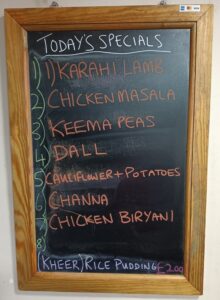 TODAY'S SPECIALS
1) 1) KARAHI LAMB
2 CHICKEN MASALA
3 KEEMA PEAS
4 DALL
5 CAULIFLOWER + POTATOES
6 CHANNA
7 CHICKEN BIRYANI
8
(KHEER) RICE PUDDING £2.00